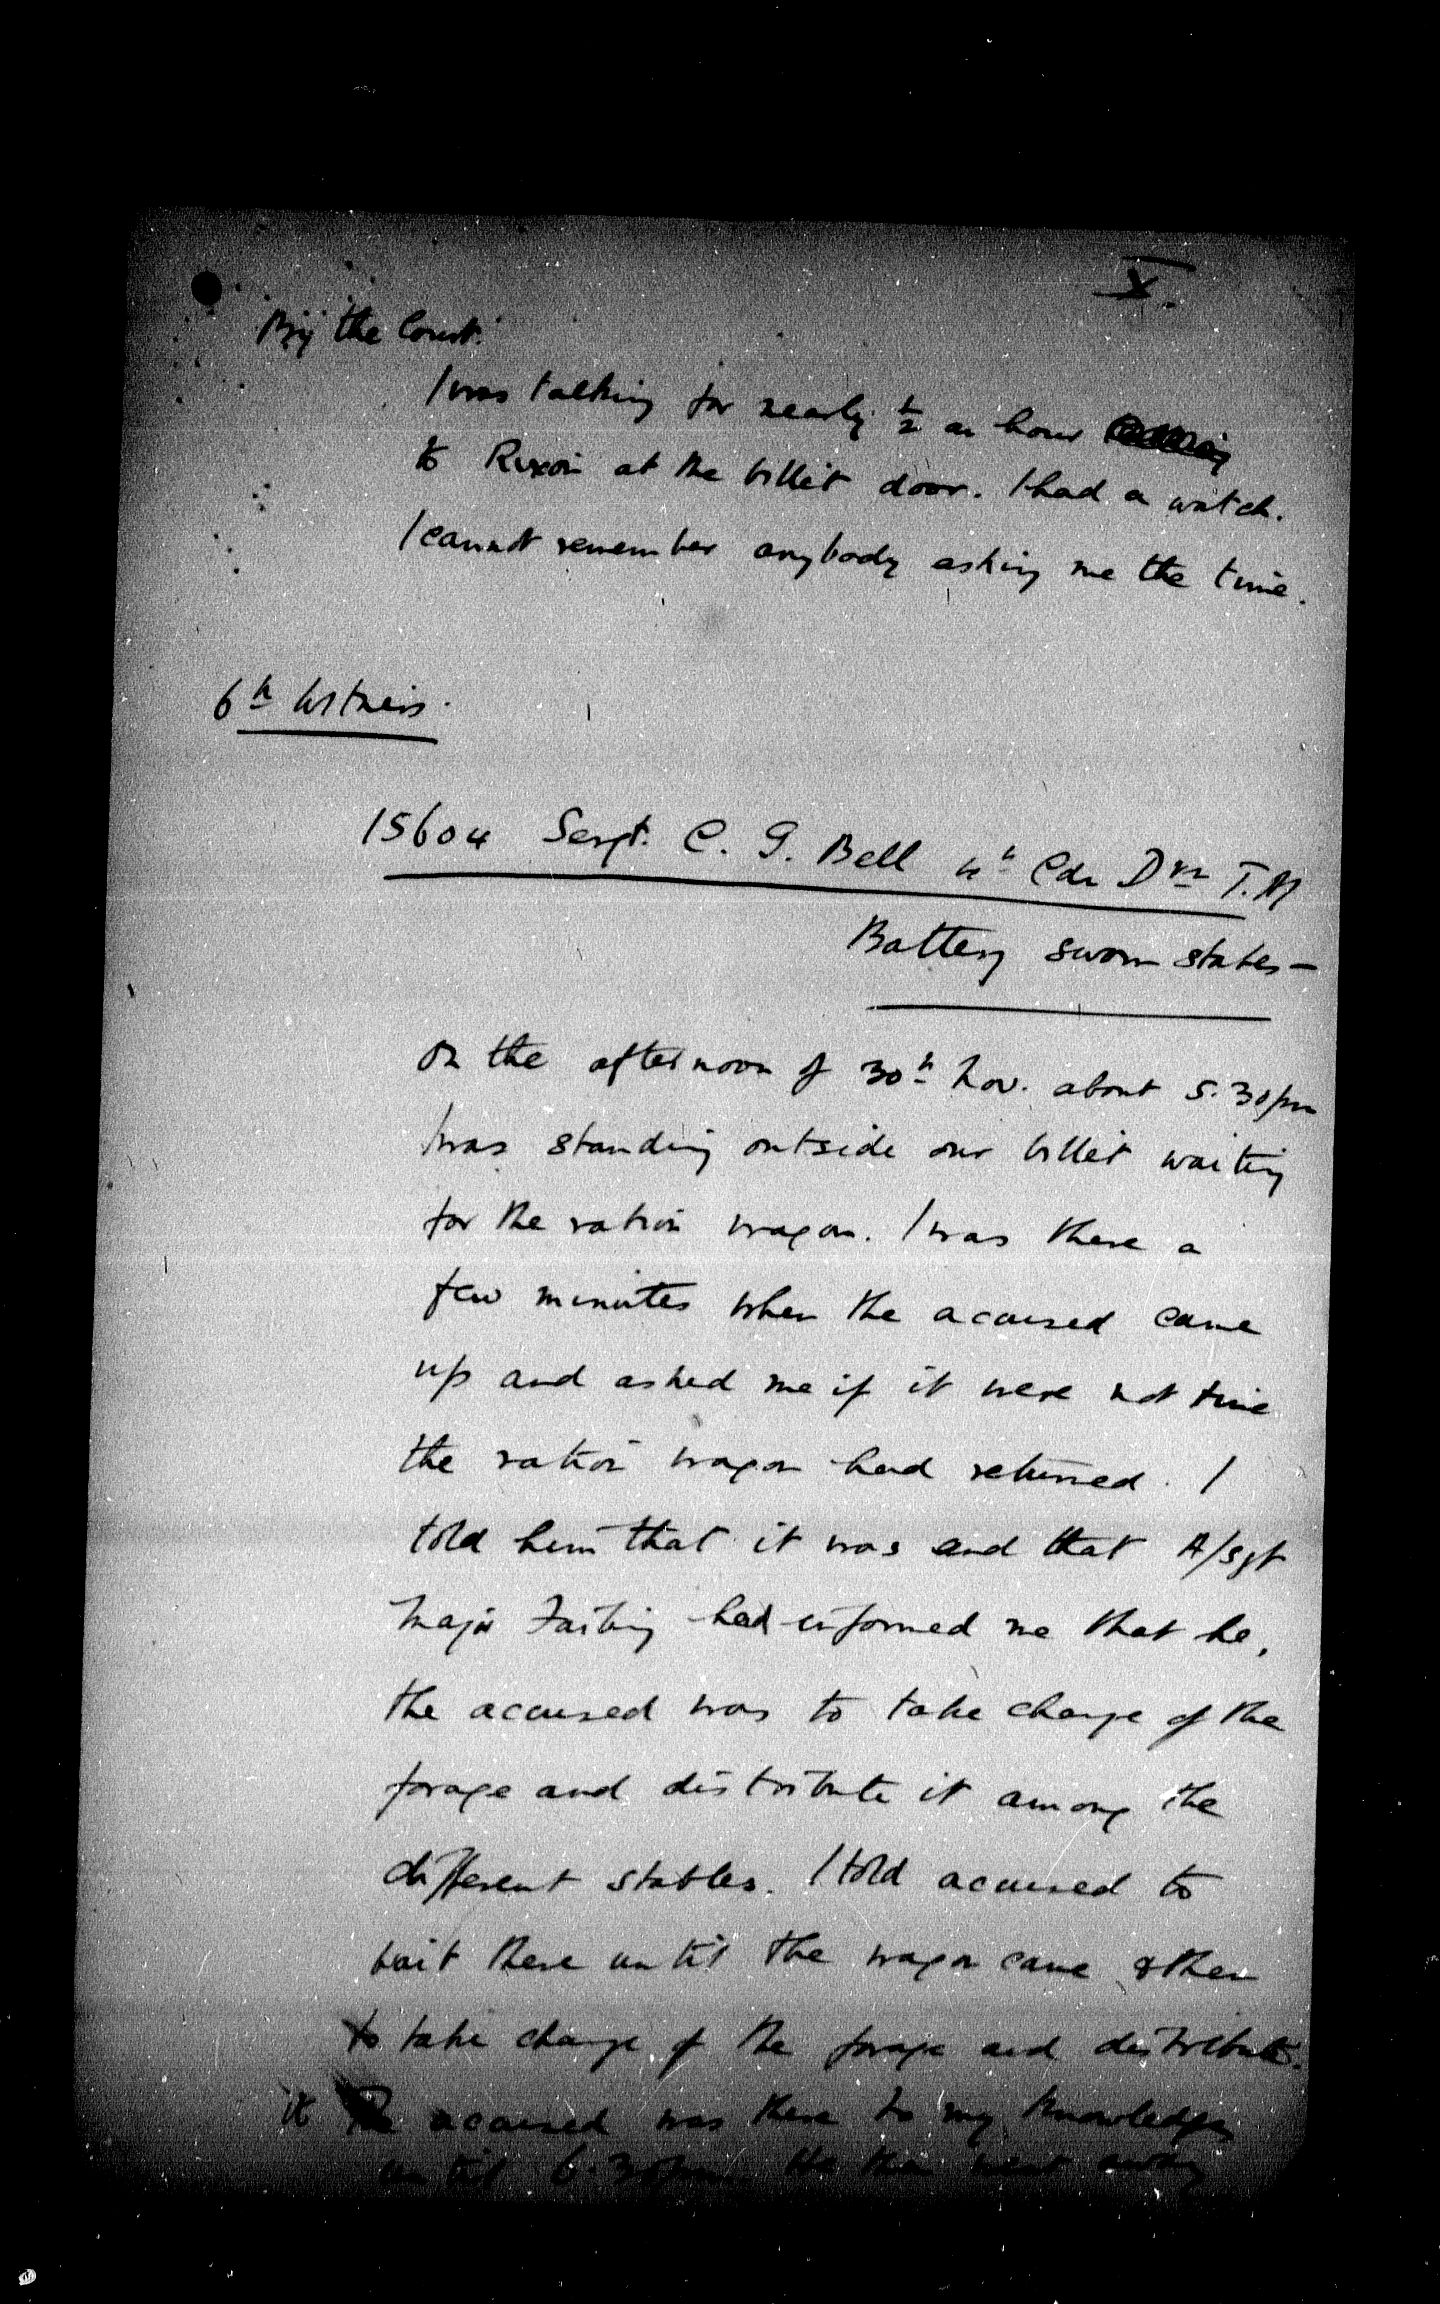 X.
By the Court.
I was talking for nearly ½ an hour
to Rixon at the billet door. I had a watch.
I cannot remember anybody asking me the time.
6th Witness.
15604 Sergt. C. G. Bell 4th Cdn Dvn T.M
Battery sworn states —
On the afternoon of 30th Nov. about 5.30pm
I was standing outside our billet waiting
for the ration wagon. I was there a
few minutes when the accused came
up and asked me if it were not time
the ration wagon had returned. I
told him that it was and that A/Sgt
Major had informed me that he,
the accused was to take charge of the
forage and distribute it among the
different stables. I told accused to
wait there until the wagon came & then
to take charge of the forage and distribute
it accused was there to my knowledge
until 6.30pm. He then went away